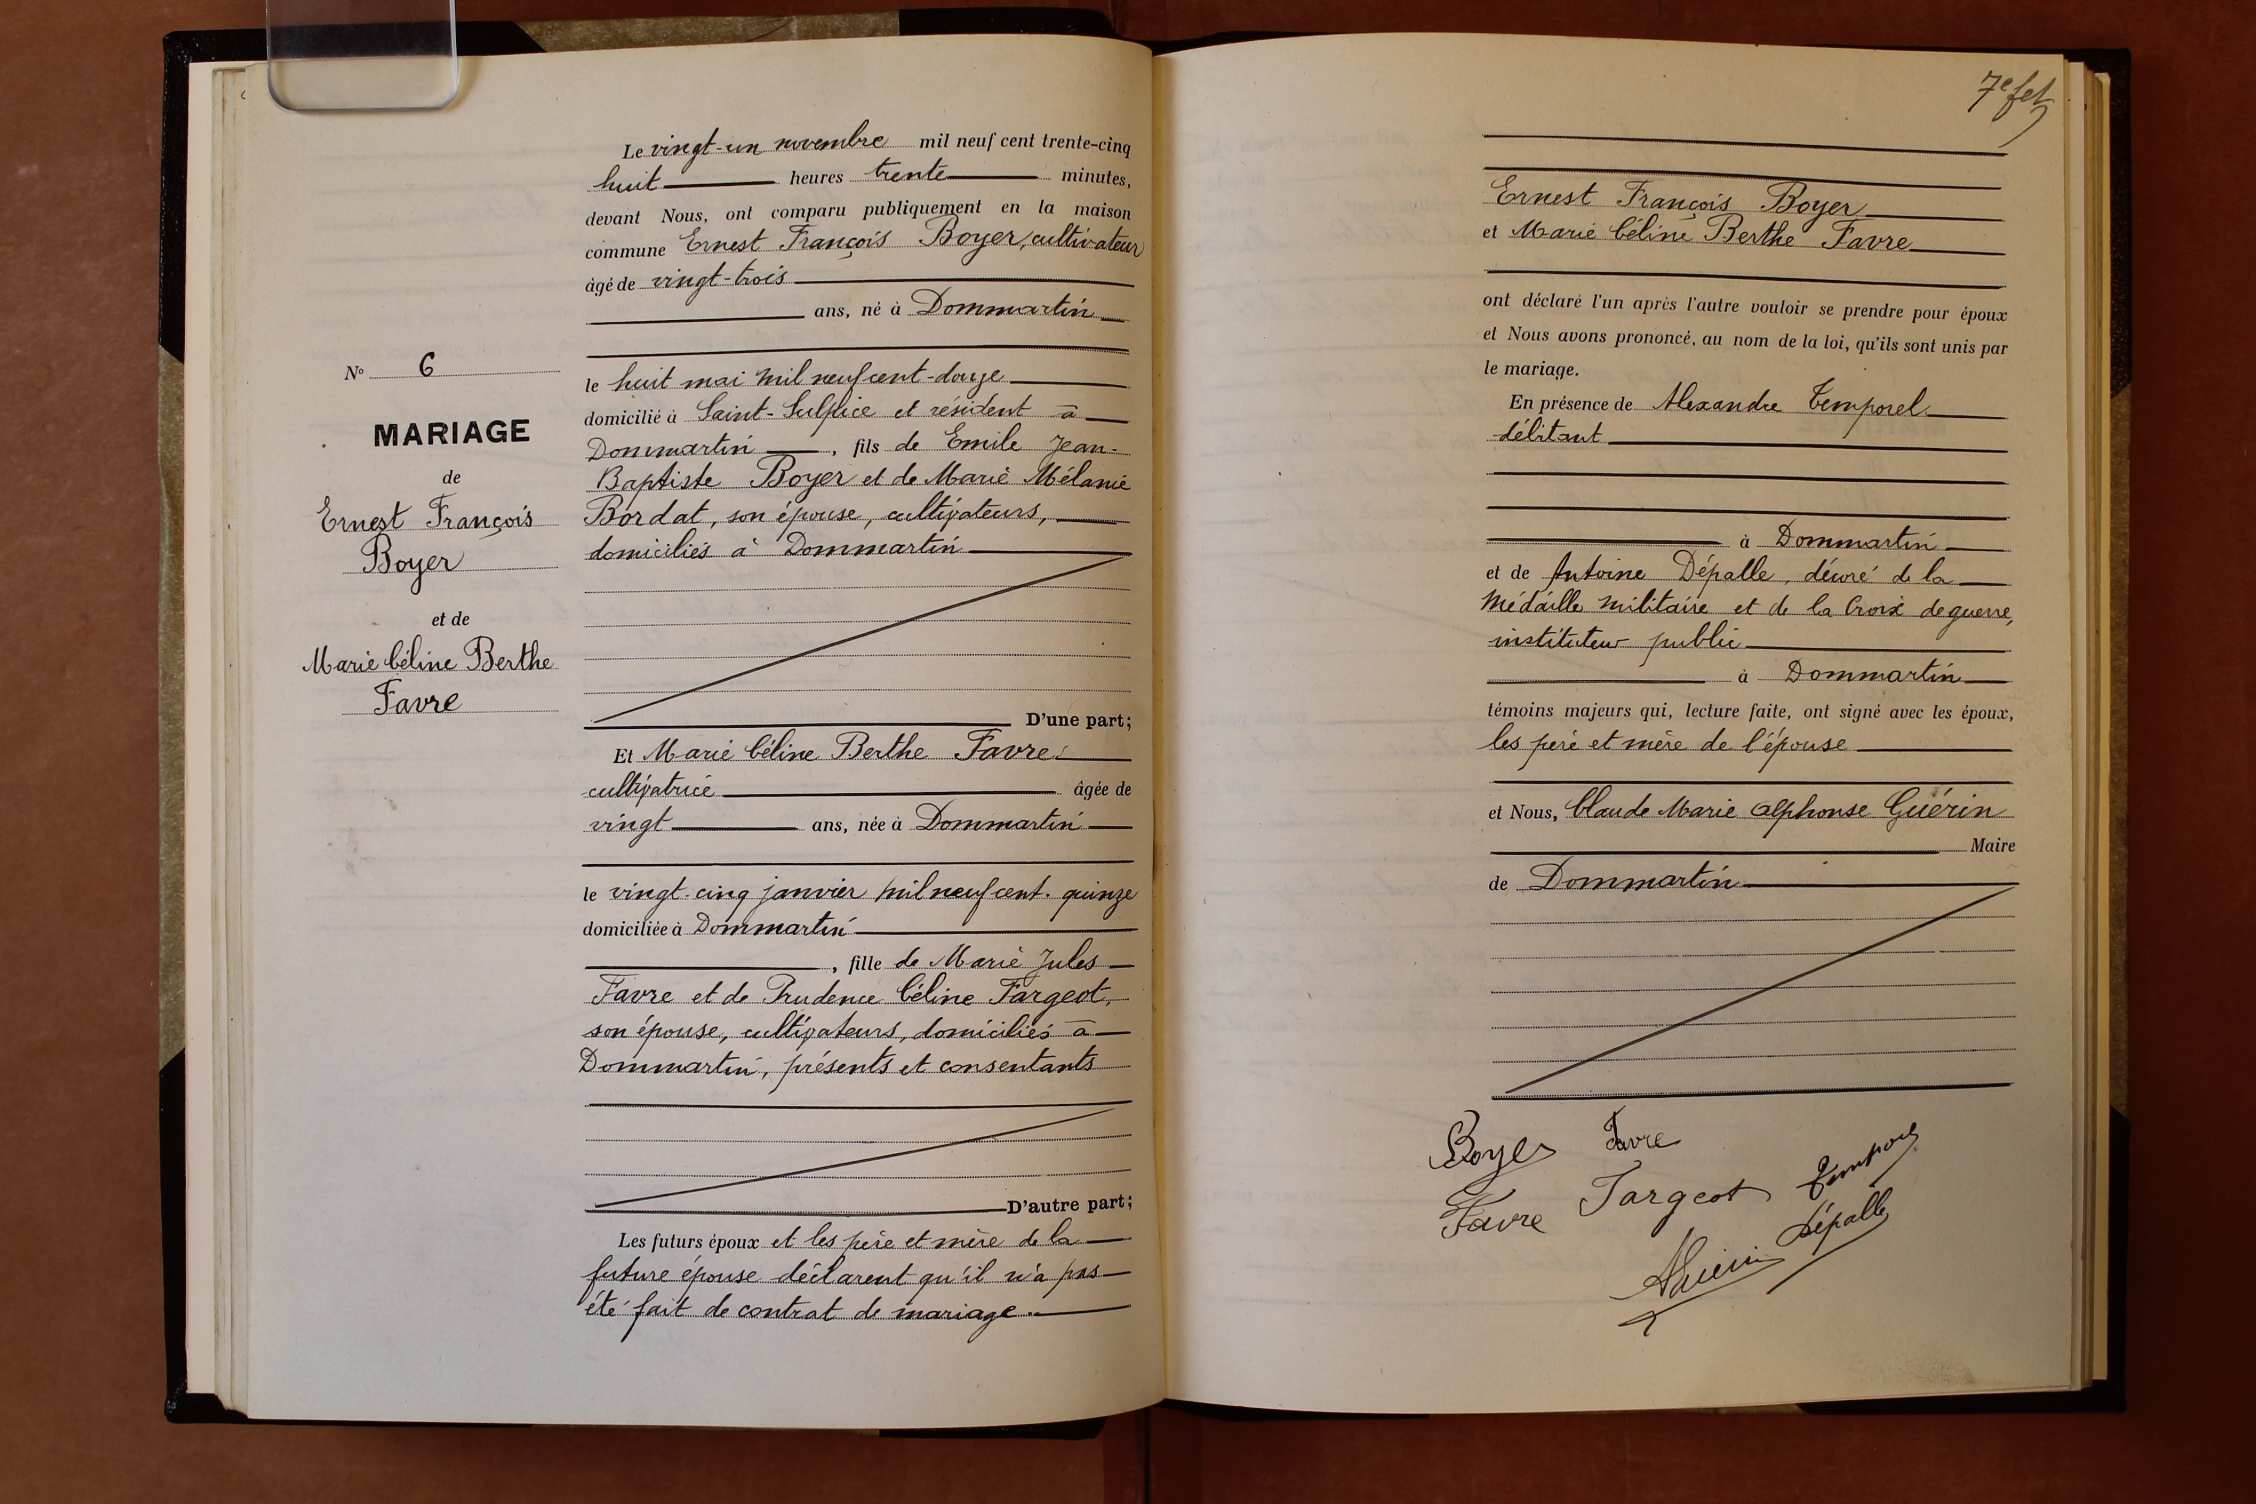 N° 6
MARIAGE
de
Ernest François
Boyer
et de
Marie Céline Berthe
Favre
Le vingt-un novembre mil neuf cent trente-cinq
huit heures trente minutes,
devant Nous, ont comparu publiquement en la maison
commune Ernest François Boyer, cultivateur
âgé de vingt-trois
ans, né à Dommartin
le huit mai mil neuf cent-douze
domicilié à Saint-Sulpice et résident à
Dommartin, fils de Emile Jean-
Baptiste Boyer et de Marie Mélanie
Bordat, son épouse, cultivateurs,
domiciliés à Dommartin
D'une part;
Et Marie Céline Berthe Favre
cultivatrice âgée de
vingt ans, née à Dommartin
le vingt-cinq janvier mil neuf cent-quinze
domiciliée à Dommartin
, fille de Marie Jules
Favre et de Prudence Céline Fargeot,
son épouse, cultivateurs, domiciliés à
Dommartin, présents et consentants
D'autre part;
Les futurs époux et les père et mère de la
future épouse déclarent qu'il n'a pas
été fait de contrat de mariage.
7e fet
Ernest François Boyer
et Marie Céline Berthe Favre
ont déclaré l'un après l'autre vouloir se prendre pour époux
et Nous avons prononcé, au nom de la loi, qu'ils sont unis par
le mariage.
En présence de Alexandre Temporel
débitant
à Dommartin
et de Antoine Dépalle, décoré de la
Médaille Militaire et de la Croix de guerre,
instituteur public
à Dommartin
témoins majeurs qui, lecture faite, ont signé avec les époux,
les père et mère de l'épouse
et Nous, Claude Marie Alphonse Guérin
Maire
de Dommartin
Boyer Favre
Favre Fargeot Temporel
Dépalle
AGuérin